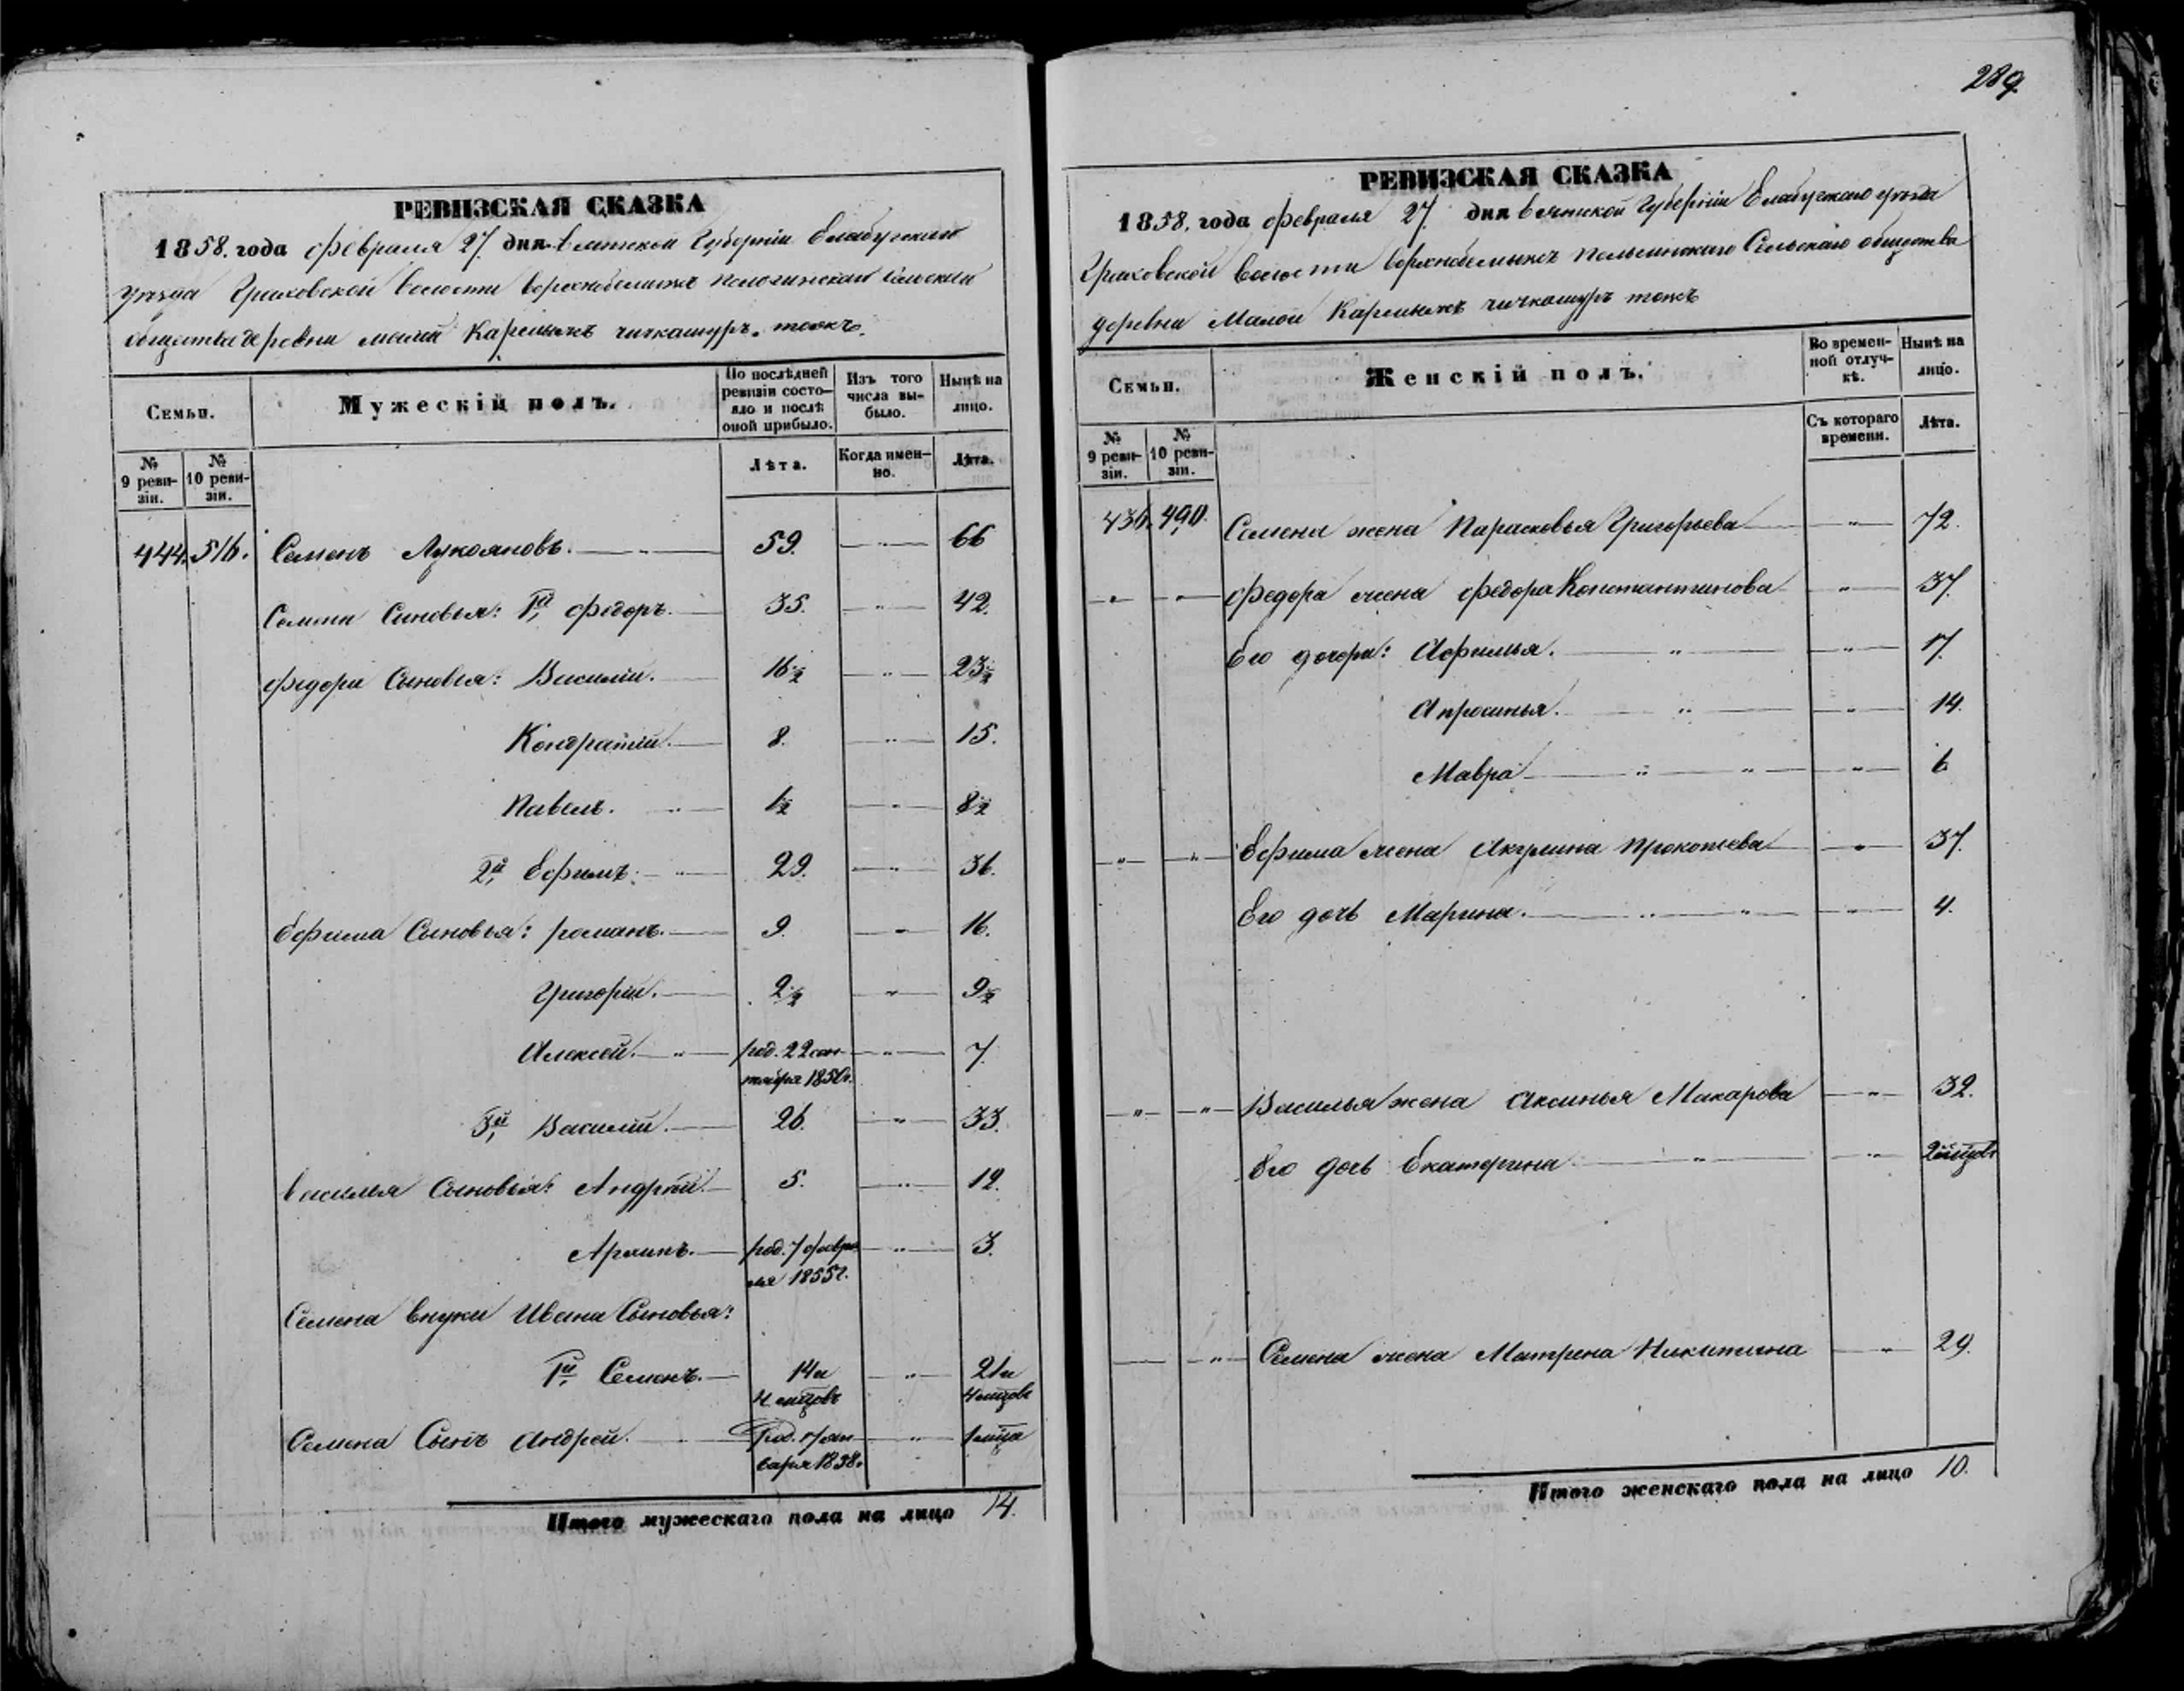 289.
РЕВИЗСКАЯ СКАЗКА
1858. года февраля 27. дня Вятской Губерніи Елабужскаго
уѣзда Граховской волости сельскаго
общества деревни малой Чичкашуръ. тожъ.
Семьи.
Мужескій полъ.
По послѣдней ревизіи состояло и послѣ оной прибыло.
Изъ того числа выбыло.
Нынѣ на лицо.
№ 9 ревизіи.
№ 10 ревизіи.
Лѣта.
Когда именно.
Лѣта.
444. 516. Семенъ Лукояновъ. 59. 66
Семена Сыновья: 1й, Федоръ. 35. 42.
Федора Сыновья: Василій. 16½ 23½
Кондратій. 8. 15.
Павелъ. 1½ 8½
2й, Ефимъ. 29. 36.
Ефима Сыновья: романъ. 9. 16.
Григорій. 2½ 9½
Алексей. род. 22 сен- 7.
тября 1850г.
3й, Василій. 26. 33.
Василья Сыновья: Андрей 5. 12.
Архипъ. род. 7 февра 3.
ля 1855г.
Семена внуки Ивана Сыновья:
1й, Семенъ. 14и 21и
4 мцовъ 4мцовъ
Семена Сынъ Андрей. род. ян- 1мца
варя 18 8г.
Итого мужескаго пола на лицо 14.
РЕВИЗСКАЯ СКАЗКА
1858. года февраля 27. дня Вятской Губерніи Елабужскаго уѣзда
Граховской волости Сельскаго общества
деревни Малой чичкашуръ тожъ
Семьи.
Женскій полъ.
Во временной отлучкѣ.
Нынѣ на лицо.
№ 9 ревизіи.
№ 10 ревизіи.
Съ котораго времени.
Лѣта.
436. 490. Семена жена Парасковья Григорьева 72.
Федора жена Федора Константинова 37.
Его дочери: Афимья. 17.
Апросинья. 14.
Мавра 6
Ефима жена Акулина Прокопьева 37.
Его дочь Марина. 4.
Василья жена Аксинья Макарова 32.
Его дочь Екатерина 2 мцовъ
Семена жена Матрена Никитина 29.
Итого женскаго пола на лицо 10.